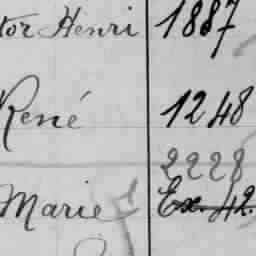 tor Henri 1887
René 1248
2228
Marie Ex. 42.